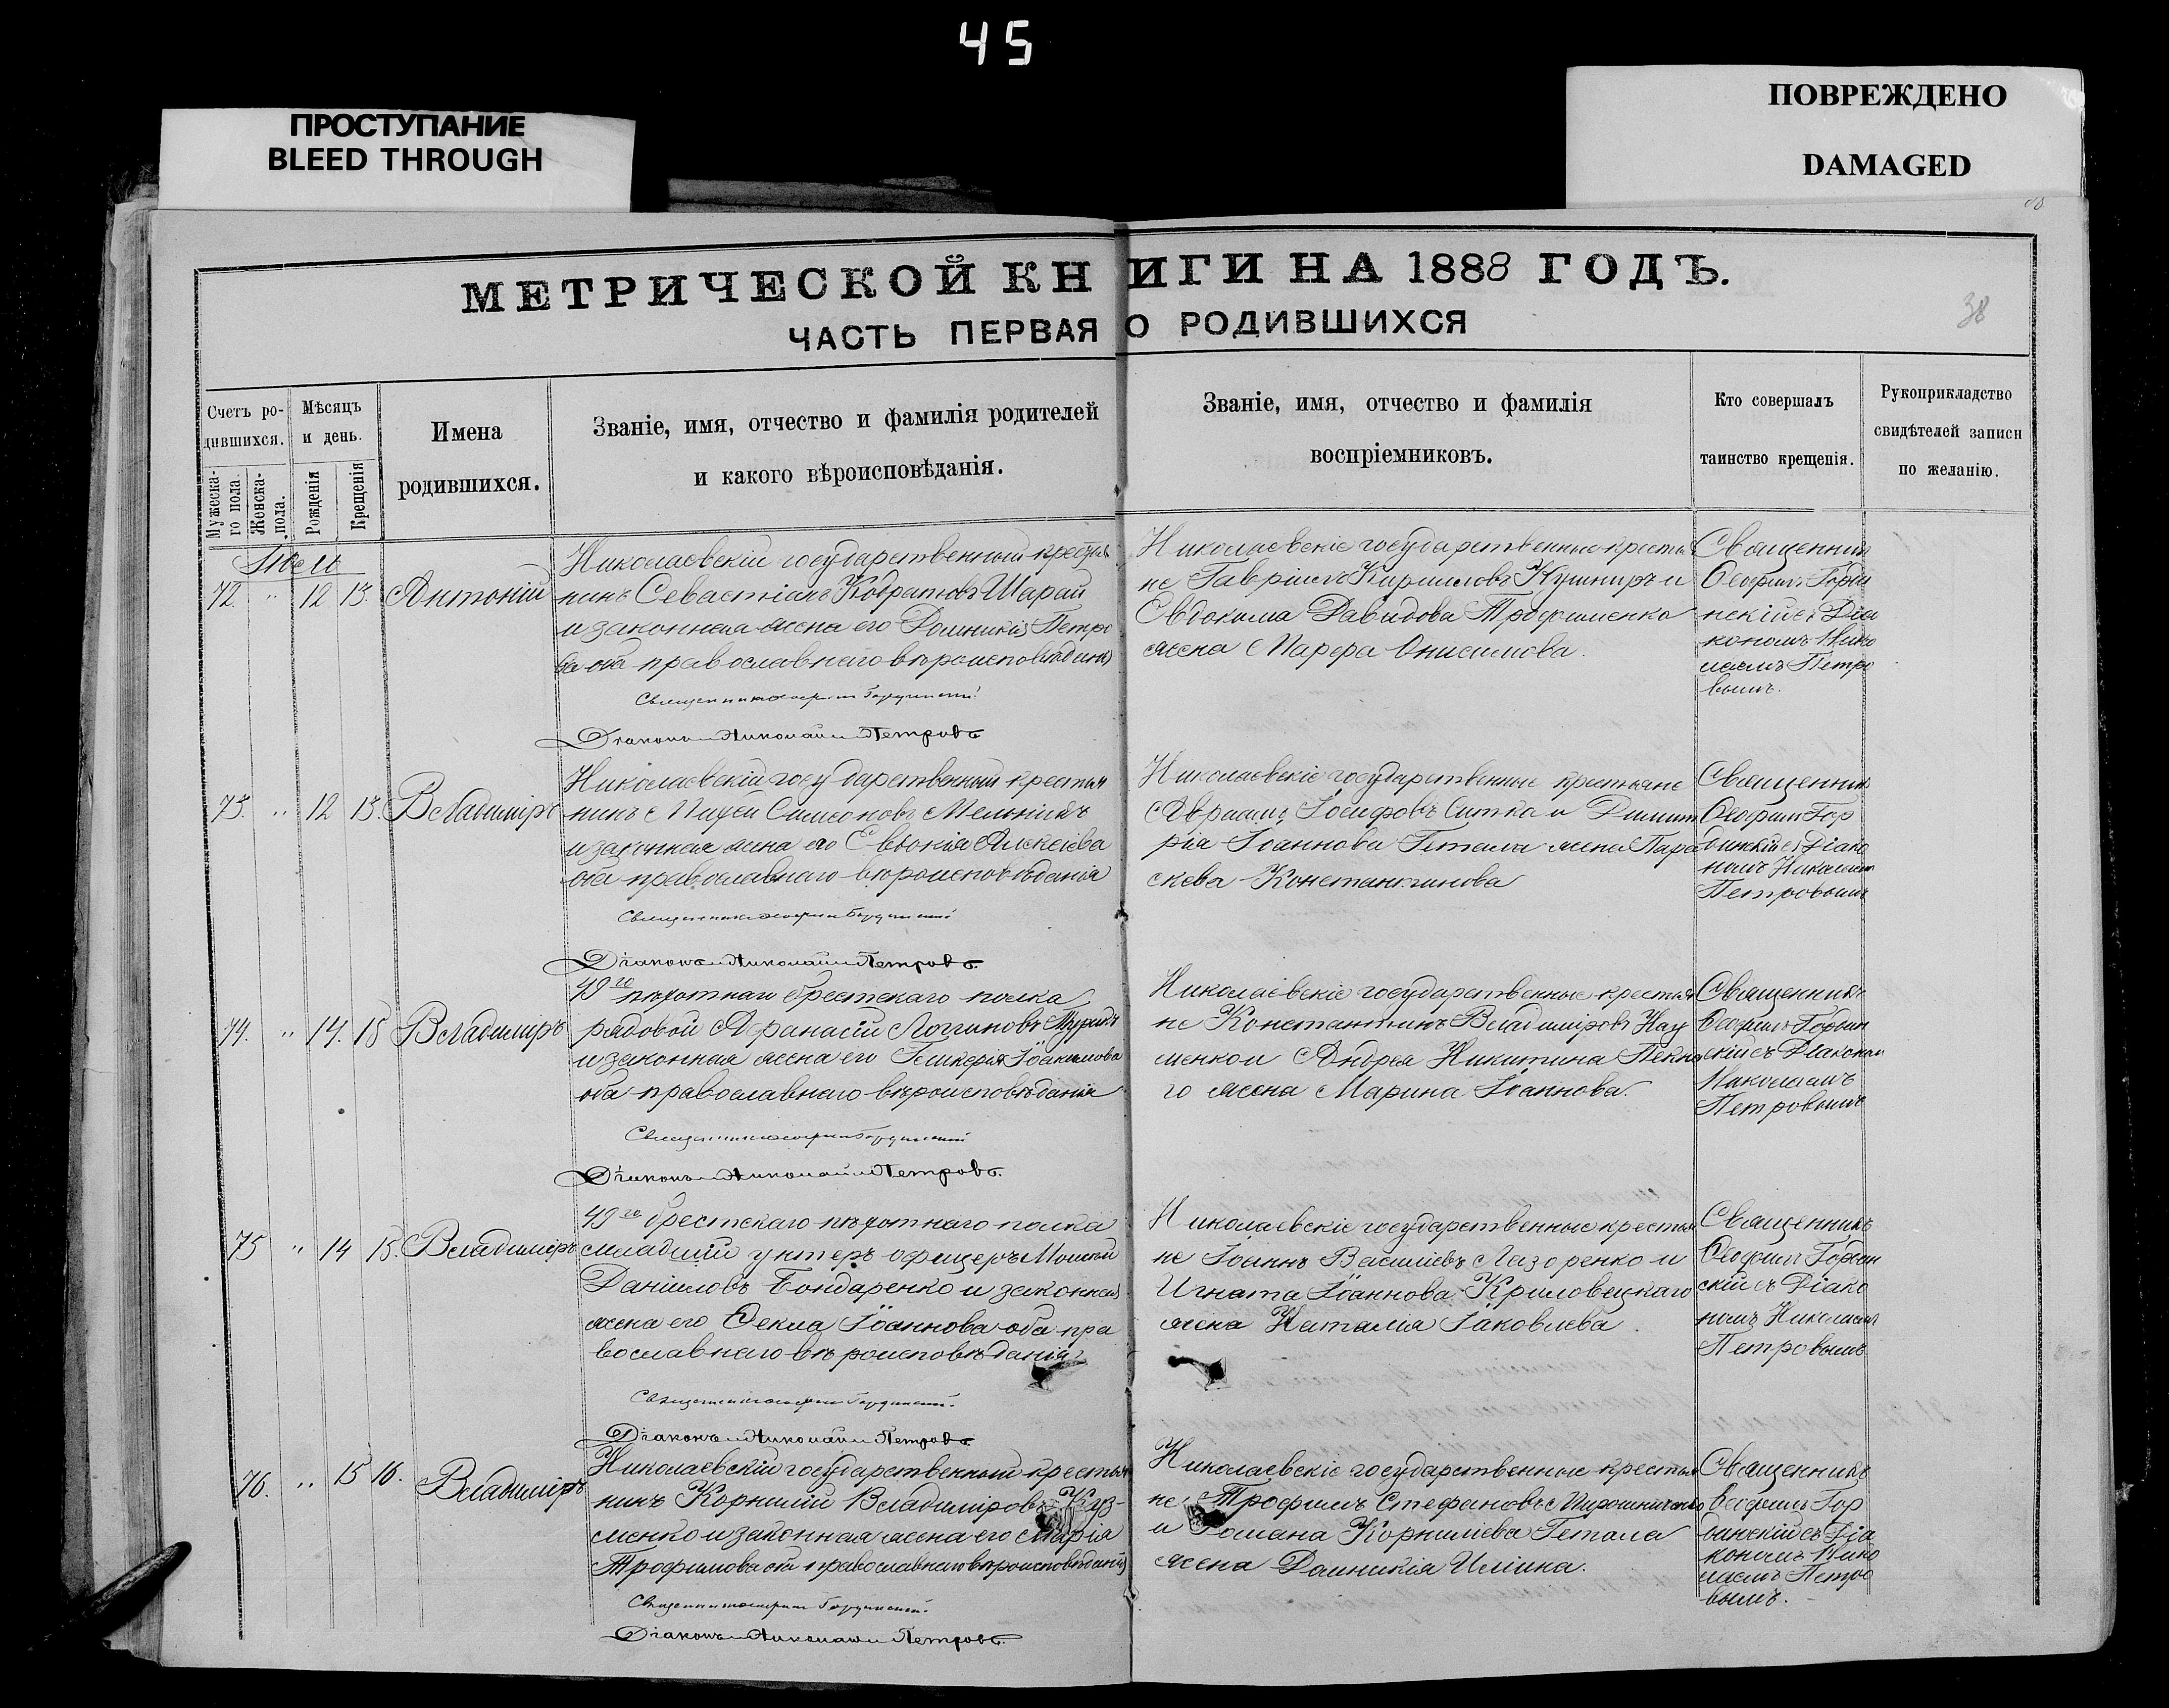 45
ПРОСТУПАНИЕ
BLEED THROUGH
ПОВРЕЖДЕНО
DAMAGED
38
МЕТРИЧЕСКОЙ КНИГИ НА 1888 ГОДЪ.
ЧАСТЬ ПЕРВАЯ О РОДИВШИХСЯ
Счетъ ро-
дившихся.
Мужеска-
го пола.
Женска-
пола.
Мѣсяцъ
и день.
Рожденія
Крещенія
Имена
родившихся.
Званіе, имя, отчество и фамилія родителей
и какого вѣроисповѣданія.
Званіе, имя, отчество и фамилія
воспріемниковъ.
Кто совершалъ
таинство крещенія.
Рукоприкладство
свидѣтелей записи
по желанію.
72. " 12 13. Антоній
Николаевскій государственный крестья
нинъ Севастіанъ Кодратовъ Шарай
и законная жена его Домникія Петро
ва оба православнаго вѣроисповѣданія
Діаконъ Николай Петровъ
Николаевскіе государственные крестья
не Гавріилъ Кириловъ Кушниръ и
Евдокима Давидова Трофименко
жена Марфа Онисимова.
Священник
Діа
кономъ Нико
лаемъ Петро
вымъ.
73. " 12 13. Владиміръ
Николаевскій государственный крестья
нинъ Мусей Симеоновъ Мельникъ
и законная жена его Евдокія Алексіева
оба православнаго вѣроисповѣданія
Діаконъ Николай Петровъ
Николаевскіе государственные крестьяне
Авраамъ Іосифовъ Ситка и Димит
рія Іоаннова Гетала жена Пара
скева Константинова
Священник
Діако
номъ Николаем
Петровымъ
74. " 14. 15 Владиміръ
49го пѣхотнаго брестскаго полка
рядовой Афанасій Логгиновъ
и законная жена его Гликерія Іоакимова
оба православнаго вѣроисповѣданія
Діаконъ Николай Петровъ.
Николаевскіе государственные крестья
не Константинъ Владиміровъ Нау
менко и Андрея Никитина
го жена Марина Іоаннова.
Священникъ
скій съ Діаконом
Николаемъ
Петровымъ
75 " 14 15. Владиміръ
49го брестскаго пѣхотнаго полка
младшій унтеръ офицеръ Моисей
Даніиловъ Бондаренко и законная
жена его Ѳекла Іоаннова оба пра
вославнаго вѣроисповѣданія
Діаконъ Николай Петровъ
Николаевскіе государственные крестья
не Іоаннъ Василіевъ Лазоренко и
Игната Іоаннова Криловецкаго
жена Наталія Іаковлева.
Священникъ
скій съ Діако
номъ Николаем
Петровымъ
76. " 15 16. Владиміръ
Николаевскій государственный крестья
нинъ Корнилій Владиміровъ Куз-
менко и законная жена его Марія
Трофимова оба православнаго вѣроисповѣданія
Діаконъ Николай Петровъ.
Николаевскіе государственные крестья
не Трофимъ Стефановъ Мирошниченко
и Романа Корниліева Гетала
жена Домникія Иліина.
Священникъ
Діа
кономъ Нико
лаемъ Петро
вымъ.